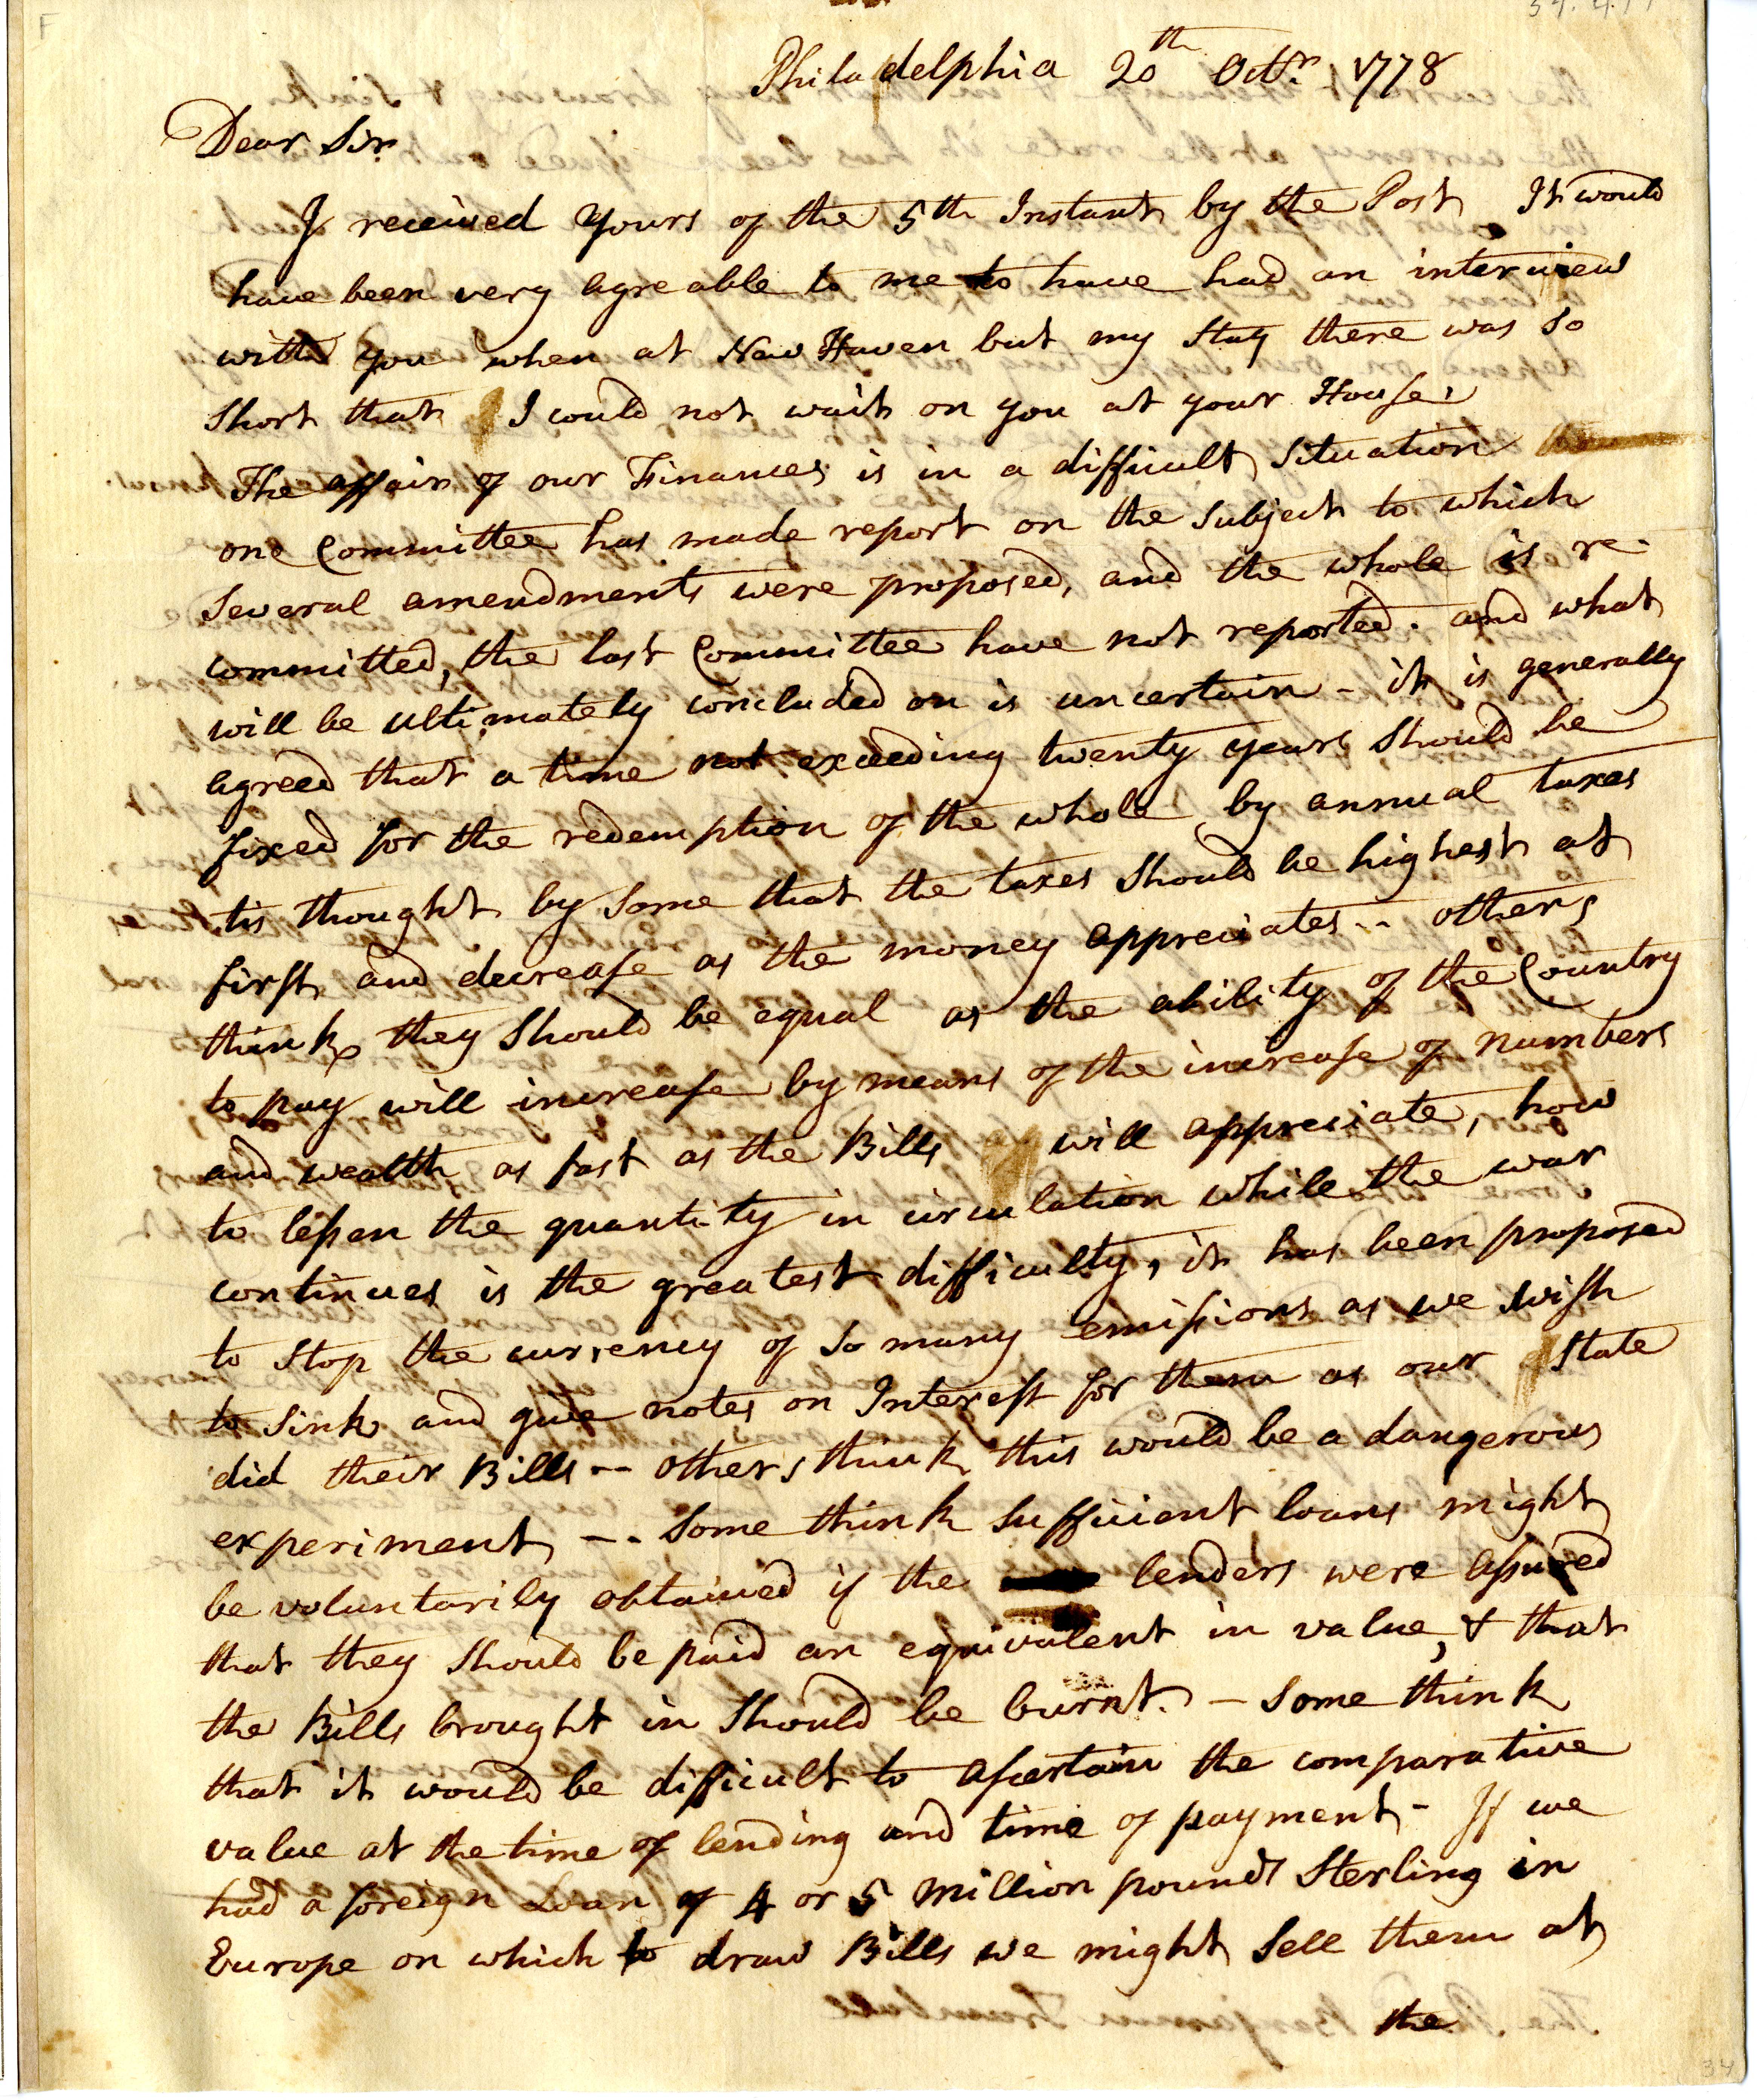 F
34.411
Philadelphia 20th Octr. 1778
Dear Sir
I received yours of the 5th Instant by the Post It would
have been very agreable to me to have had an interview
with you when at New Haven but my stay there was so
short that I could not wait on you at your House.
The affair of our Finances is in a difficult situation
one Committee has made report on the subject to which
several amendments were proposed, and the whole is re-
committed, the last Committee have not reported. and what
will be ultimately concluded on is uncertain - it is generally
agreed that a time not exceeding twenty years should be
fixed for the redemption of the whole by annual taxes
tis thought by some that the taxes should be highest at
first and decrease as the money appreciates -- others
think they should be equal as the ability of the Country
to pay will increase by means of the increase of numbers
and wealth as fast as the Bills will appreciate, how
to lessen the quantity in circulation while the war
continues is the greatest difficulty, it has been proposed
to stop the currency of so many emissions as we wish
to sink and give notes on Interest for them as our State
did their Bills -- others think this would be a dangerous
experiment -- some think sufficient loans might
be voluntarily obtained if the lenders were assured
that they should be paid an equivalent in value, & that
the Bills brought in should be burnt. - some think
that it would be difficult to ascertain the comparative
value at the time of lending and time of payment - If we
had a foreign Loan of 4 or 5 million pounds Sterling in
Europe on which to draw Bills we might sell them at
the
34